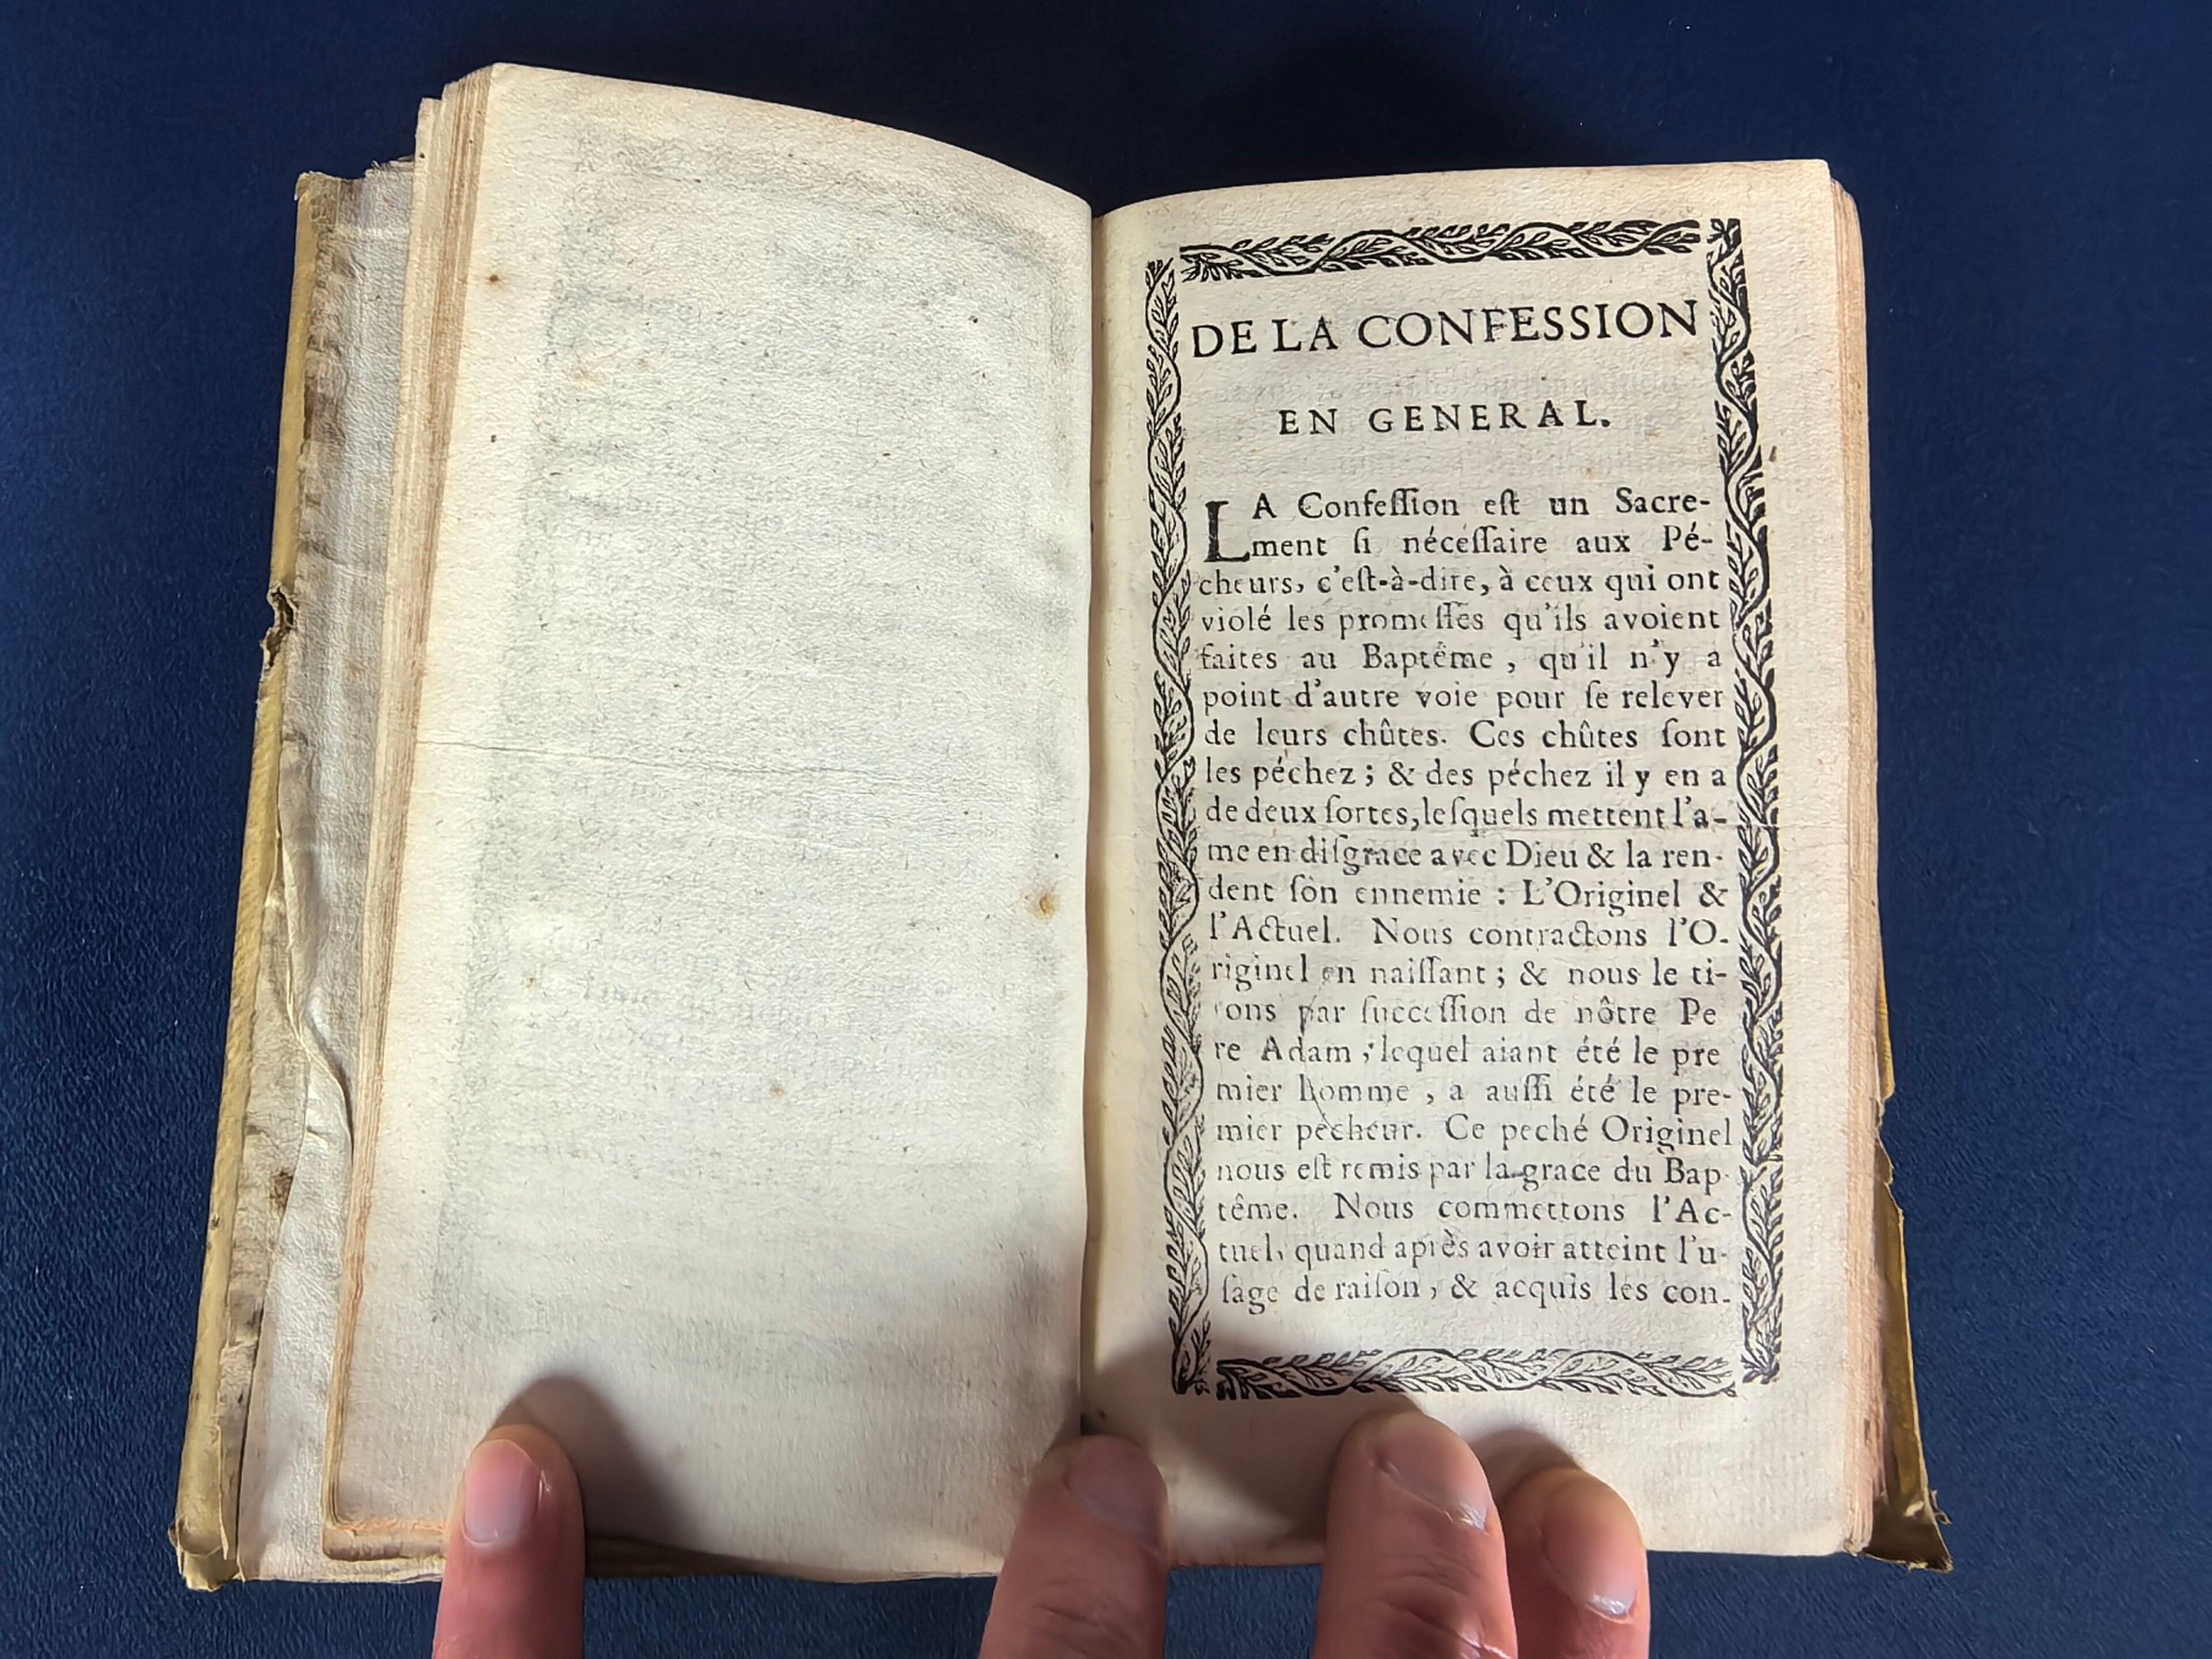 DE LA CONFESSION
EN GENERAL.
LA Confeſſion eſt un Sacre-
ment ſi néceſſaire aux Pé-
cheurs, c'eſt-à-dire, à ceux qui ont
violé les promeſſes qu'ils avoient
faites au Baptême, qu'il n'y a
point d'autre voie pour ſe relever
de leurs chûtes. Ces chûtes ſont
les péchez; & des péchez il y en a
de deux ſortes, leſquels mettent l'a-
me en diſgrace avec Dieu & la ren-
dent ſon ennemie : L'Originel &
l'Actuel. Nous contractons l'O-
riginel en naiſſant; & nous le ti-
rons par ſucceſſion de nôtre Pe
re Adam, lequel aiant été le pre
mier homme, a auſſi été le pre-
mier pecheur. Ce peché Originel
nous eſt remis par la grace du Bap-
tême. Nous commettons l'Ac-
tuel, quand après avoir atteint l'u-
ſage de raiſon, & acquis les con-